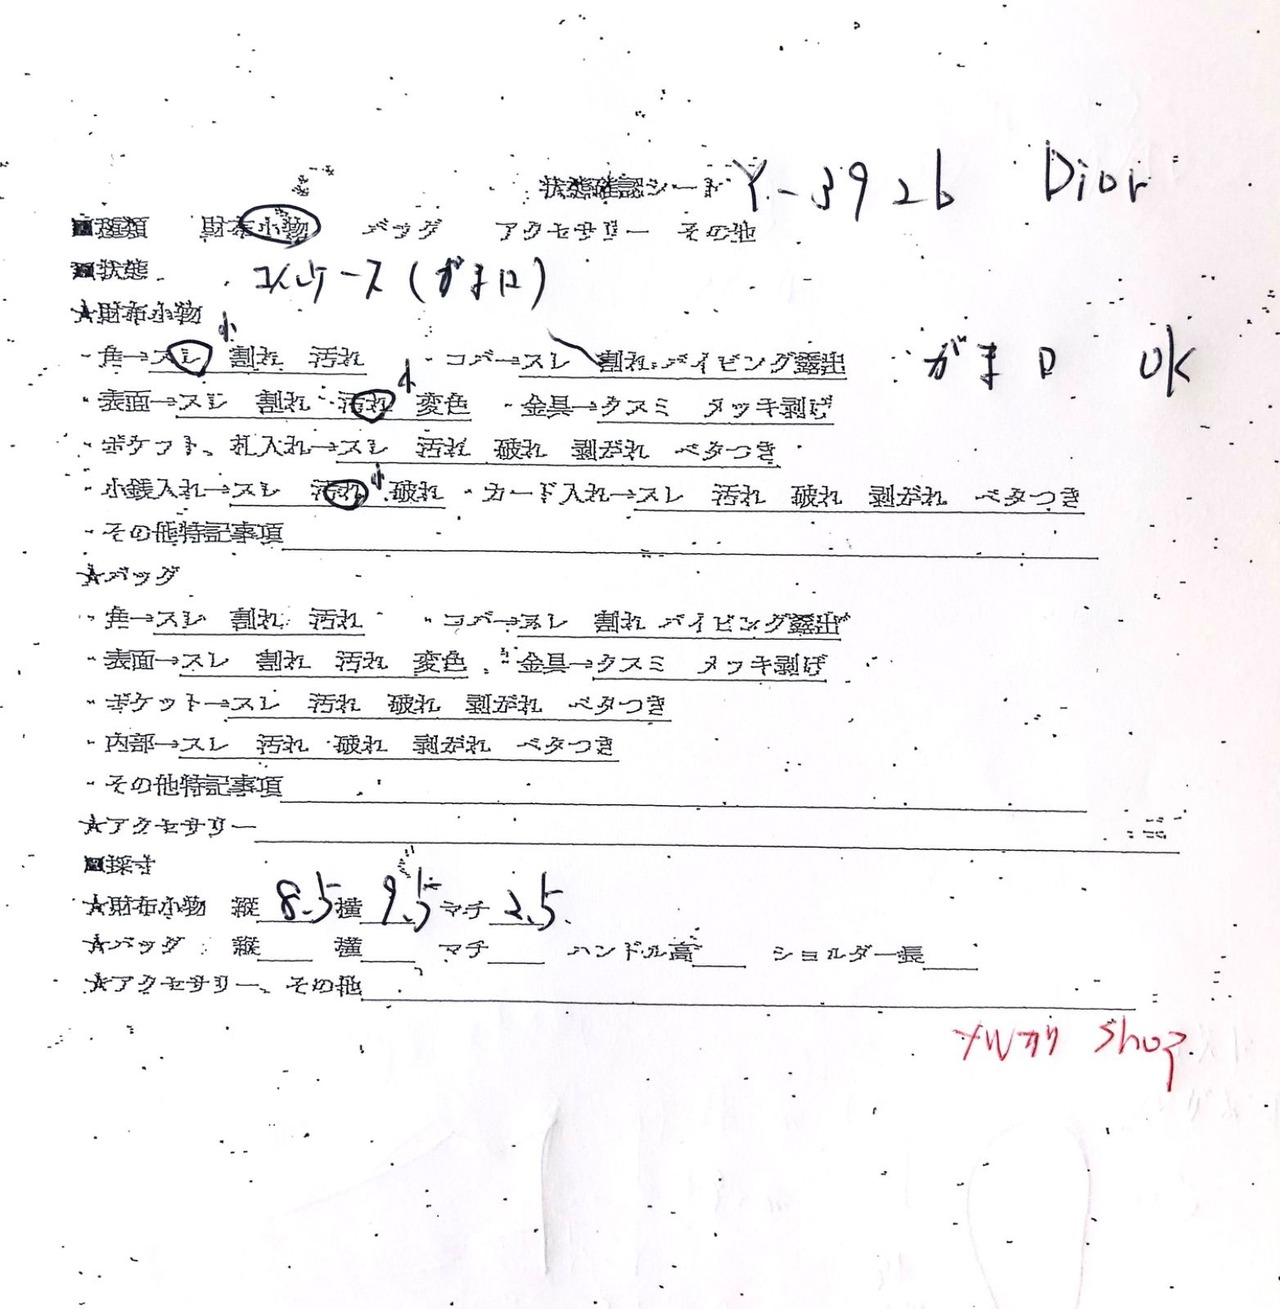 状態確認シート Y-3926 Dior
■種類 財布小物 バッグ アクセサリー その他
■状態 コインケース(がま口)
★財布小物
・角→スレ 小 割れ 汚れ ・コバ→スレ 割れ パイピング露出 がま口 OK
・表面→スレ 割れ 汚れ 小 変色 ・金具→クスミ メッキ剥げ
・ポケット、札入れ→スレ 汚れ 破れ 剥がれ ベタつき
・小銭入れ→スレ 汚れ 小 破れ ・カード入れ→スレ 汚れ 破れ 剥がれ ベタつき
・その他特記事項
★バッグ
・角→スレ 割れ 汚れ ・コバ→スレ 割れ パイピング露出
・表面→スレ 割れ 汚れ 変色 ・金具→クスミ メッキ剥げ
・ポケット→スレ 汚れ 破れ 剥がれ ベタつき
・内部→スレ 汚れ 破れ 剥がれ ベタつき
・その他特記事項
★アクセサリー
■採寸
★財布小物 縦 8.5 横 9.5 マチ 2.5
★バッグ 縦 横 マチ ハンドル高 ショルダー長
★アクセサリー、その他
メルカリ Shop